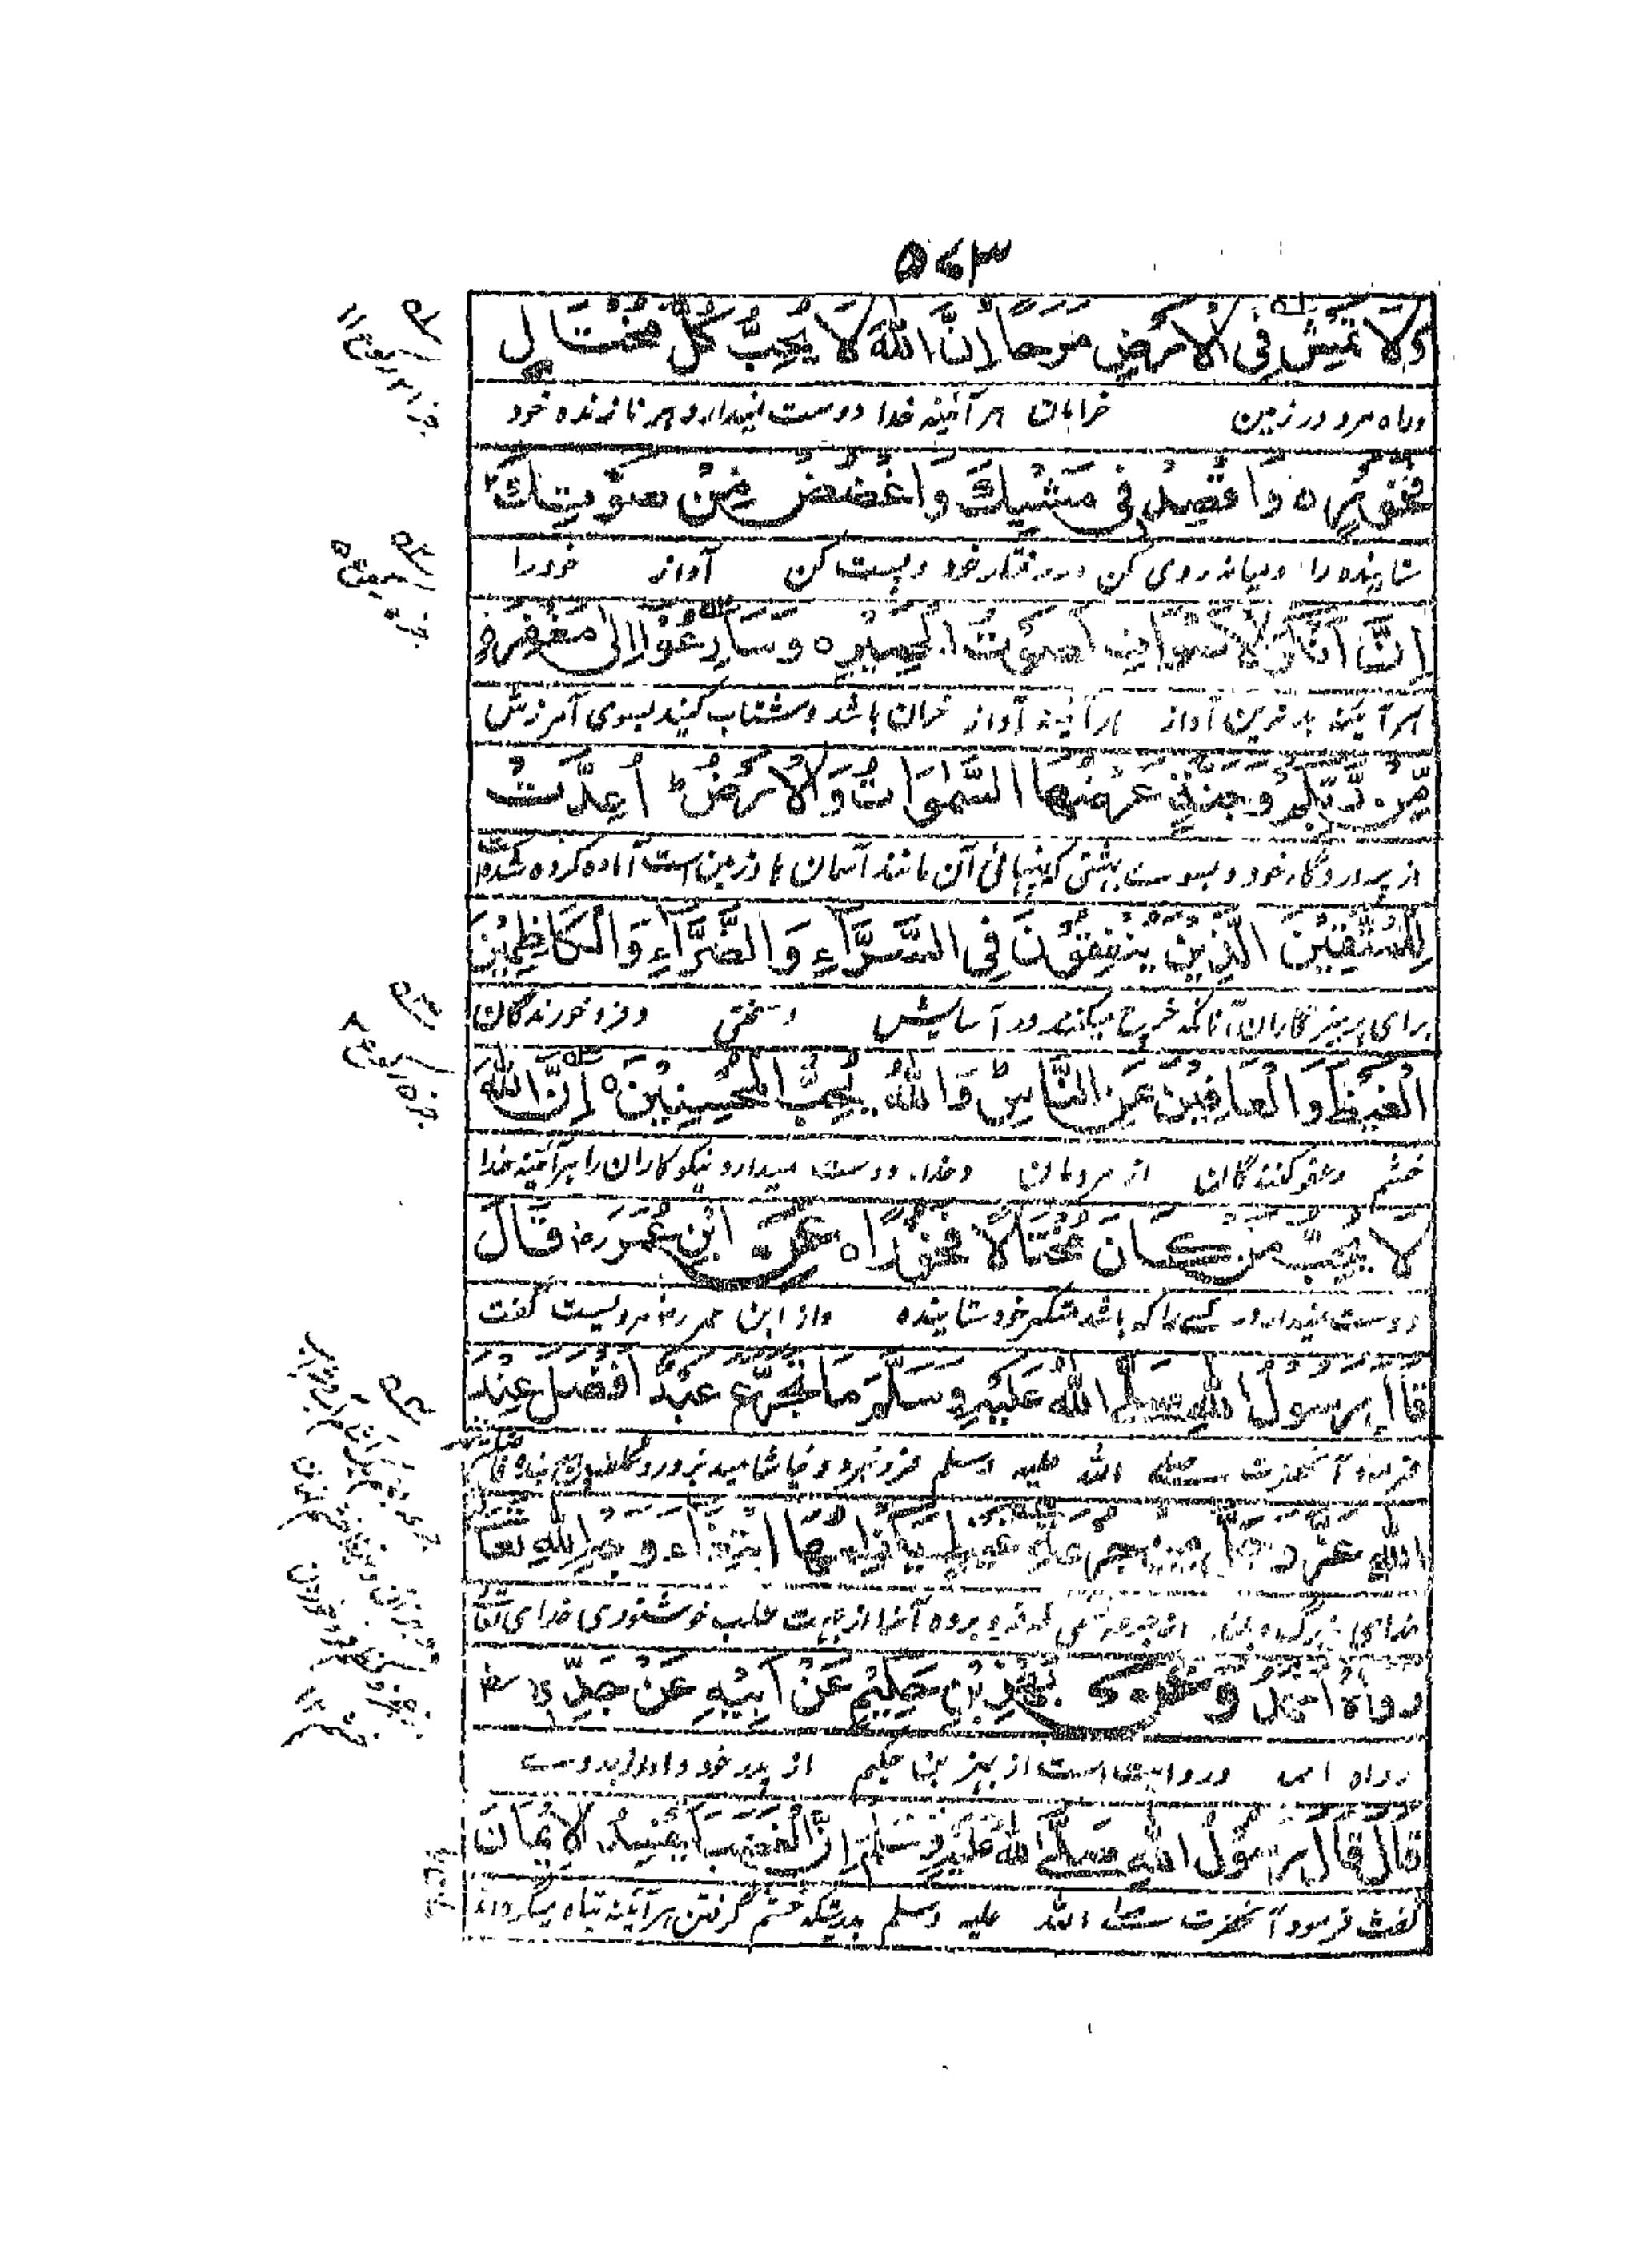 ۵۶۳
وَلَا تَمْشِ فِی الْاَرْضِ مَرَحًا اِنَّ اللّٰهَ لَا یُحِبُّ کُلَّ مُخْتَالٍ
وراه مرو در زمین خرامان هر آئینه خدا دوست نمیدارد هر نازنده خود
فَخُوْرٍ ه وَاقْصِدْ فِیْ مَشْیِكَ وَاغْضُضْ مِنْ صَوْتِكَ
ستاینده را ومیانه روی کن در رفتار خود و پست کن آواز خود را
اِنَّ اَنْکَرَ الْاَصْوَاتِ لَصَوْتُ الْحَمِیْرِ ه وَسَارِعُوْا اِلٰی مَغْفِرَةٍ
هر آئینه بدترین آواز هر آئینه آواز خران باشد وشتاب کنید بسوی آمرزش
مِّنْ رَّبِّکُمْ وَجَنَّةٍ عَرْضُهَا السَّمٰوَاتُ وَالْاَرْضُ ط اُعِدَّتْ
از پروردگار خود و بسوے بهشتی که پهنائی آن مانند آسمان ها وزمین است آماده کرده شده
لِلْمُتَّقِیْنَ الَّذِیْنَ یُنْفِقُوْنَ فِی السَّرَّآءِ وَالضَّرَّآءِ وَالْکَاظِمِیْنَ
برای پرهیزگاران آنانکه خرچ میکنند در آسایش وسختی وفرو خورندگان
الْغَیْظَ وَالْعَافِیْنَ عَنِ النَّاسِ ط وَاللّٰهُ یُحِبُّ الْمُحْسِنِیْنَ ه اِنَّ اللّٰهَ
خشم وعفو کنندگان از مردمان وخدا دوست میدارد نیکوکاران را هر آئینه خدا
لَا یُحِبُّ مَنْ کَانَ مُخْتَالًا فَخُوْرًا ه عَنِ ابْنِ عُمَرَ رض قَالَ
دوست نمیدارد کسے را که باشد متکبر خود ستاینده واز ابن عمر رض مرویست گفت
قَالَ رَسُوْلُ اللّٰهِ صَلَّی اللّٰهُ عَلَیْهِ وَسَلَّمَ مَا تَجَرَّعَ عَبْدٌ اَفْضَلَ عِنْدَ
فرمود آنحضرت صلے الله علیه وسلم فرو نبرد و نیاشامید
اللّٰهِ عَزَّ وَجَلَّ مِنْ جُرْعَةِ غَیْظٍ یَکْظِمُهَا ابْتِغَاءَ وَجْهِ اللّٰهِ تَعَا
خدای از جرعه که فرو برده آنرا از جهت طلب خوشنودی خدای تعا
رَوَاهُ اَحْمَدُ وَعَنْ بَهْزِ بْنِ حَکِیْمٍ عَنْ اَبِیْهِ عَنْ جَدِّهٖ
رواه وروایت است از بهز بن حکیم از پدر خود
قَالَ قَالَ رَسُوْلُ اللّٰهِ صَلَّی اللّٰهُ عَلَیْهِ وَسَلَّمَ اِنَّ الْغَضَبَ لَیُفْسِدُ الْاِیْمَانَ
گفت فرمود آنحضرت صلے الله علیه وسلم بدرستیکه خشم گرفتن هر آئینه تباه میگرداند